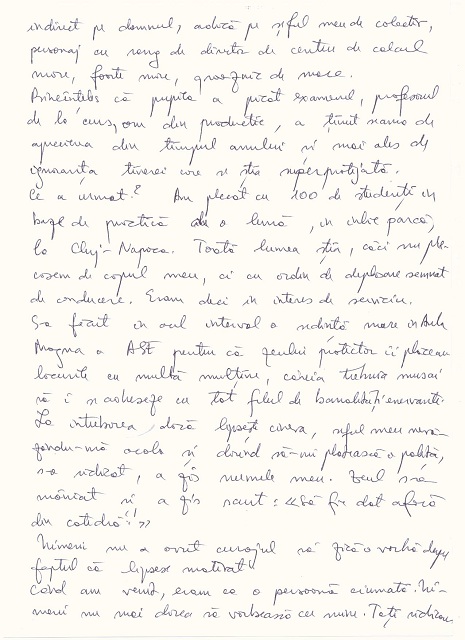 indirect pe domnul, adică pe șeful meu de colectiv,
personaj cu rang de director de centru de calcul
mare, foarte mare, groaznic de mare.
Bineînțeles că pupila a picat examenul, profesorul
de la curs, om din producție, a ținut seama de
aprecierea din timpul anului și mai ales de
ignoranța tinerei care se știa superprotejată.
Ce a urmat? Am plecat cu 100 de studenți în
baze de practică de o lună, în care parcă,
la Cluj-Napoca. Toată lumea știa, căci nu ple-
casem de capul meu, ci cu ordin de deplasare semnat
de conducere. Eram deci în interes de serviciu.
S-a făcut în acel interval o ședință mare în Aula
Magna a ASE pentru că zeului protector îi plăceau
locurile cu multă mulțime, căreia trebuia musai
să i se adreseze cu tot felul de banalități enervante.
La întrebarea, dacă lipsește cineva, șeful meu nevă-
zându-mă acolo și dorind să-mi plătească o poliță,
s-a ridicat, a zis numele meu. Zeul s-a
mâniat și a zis sacru: «Să fie dat afară
din catedră!»
Nimeni nu a avut curajul să zică o vorbă despre
faptul că lipsesc motivat.
Când am venit, eram ca o persoană ciumată. Ni-
meni nu mai dorea să vorbească cu mine. Toți ridicau